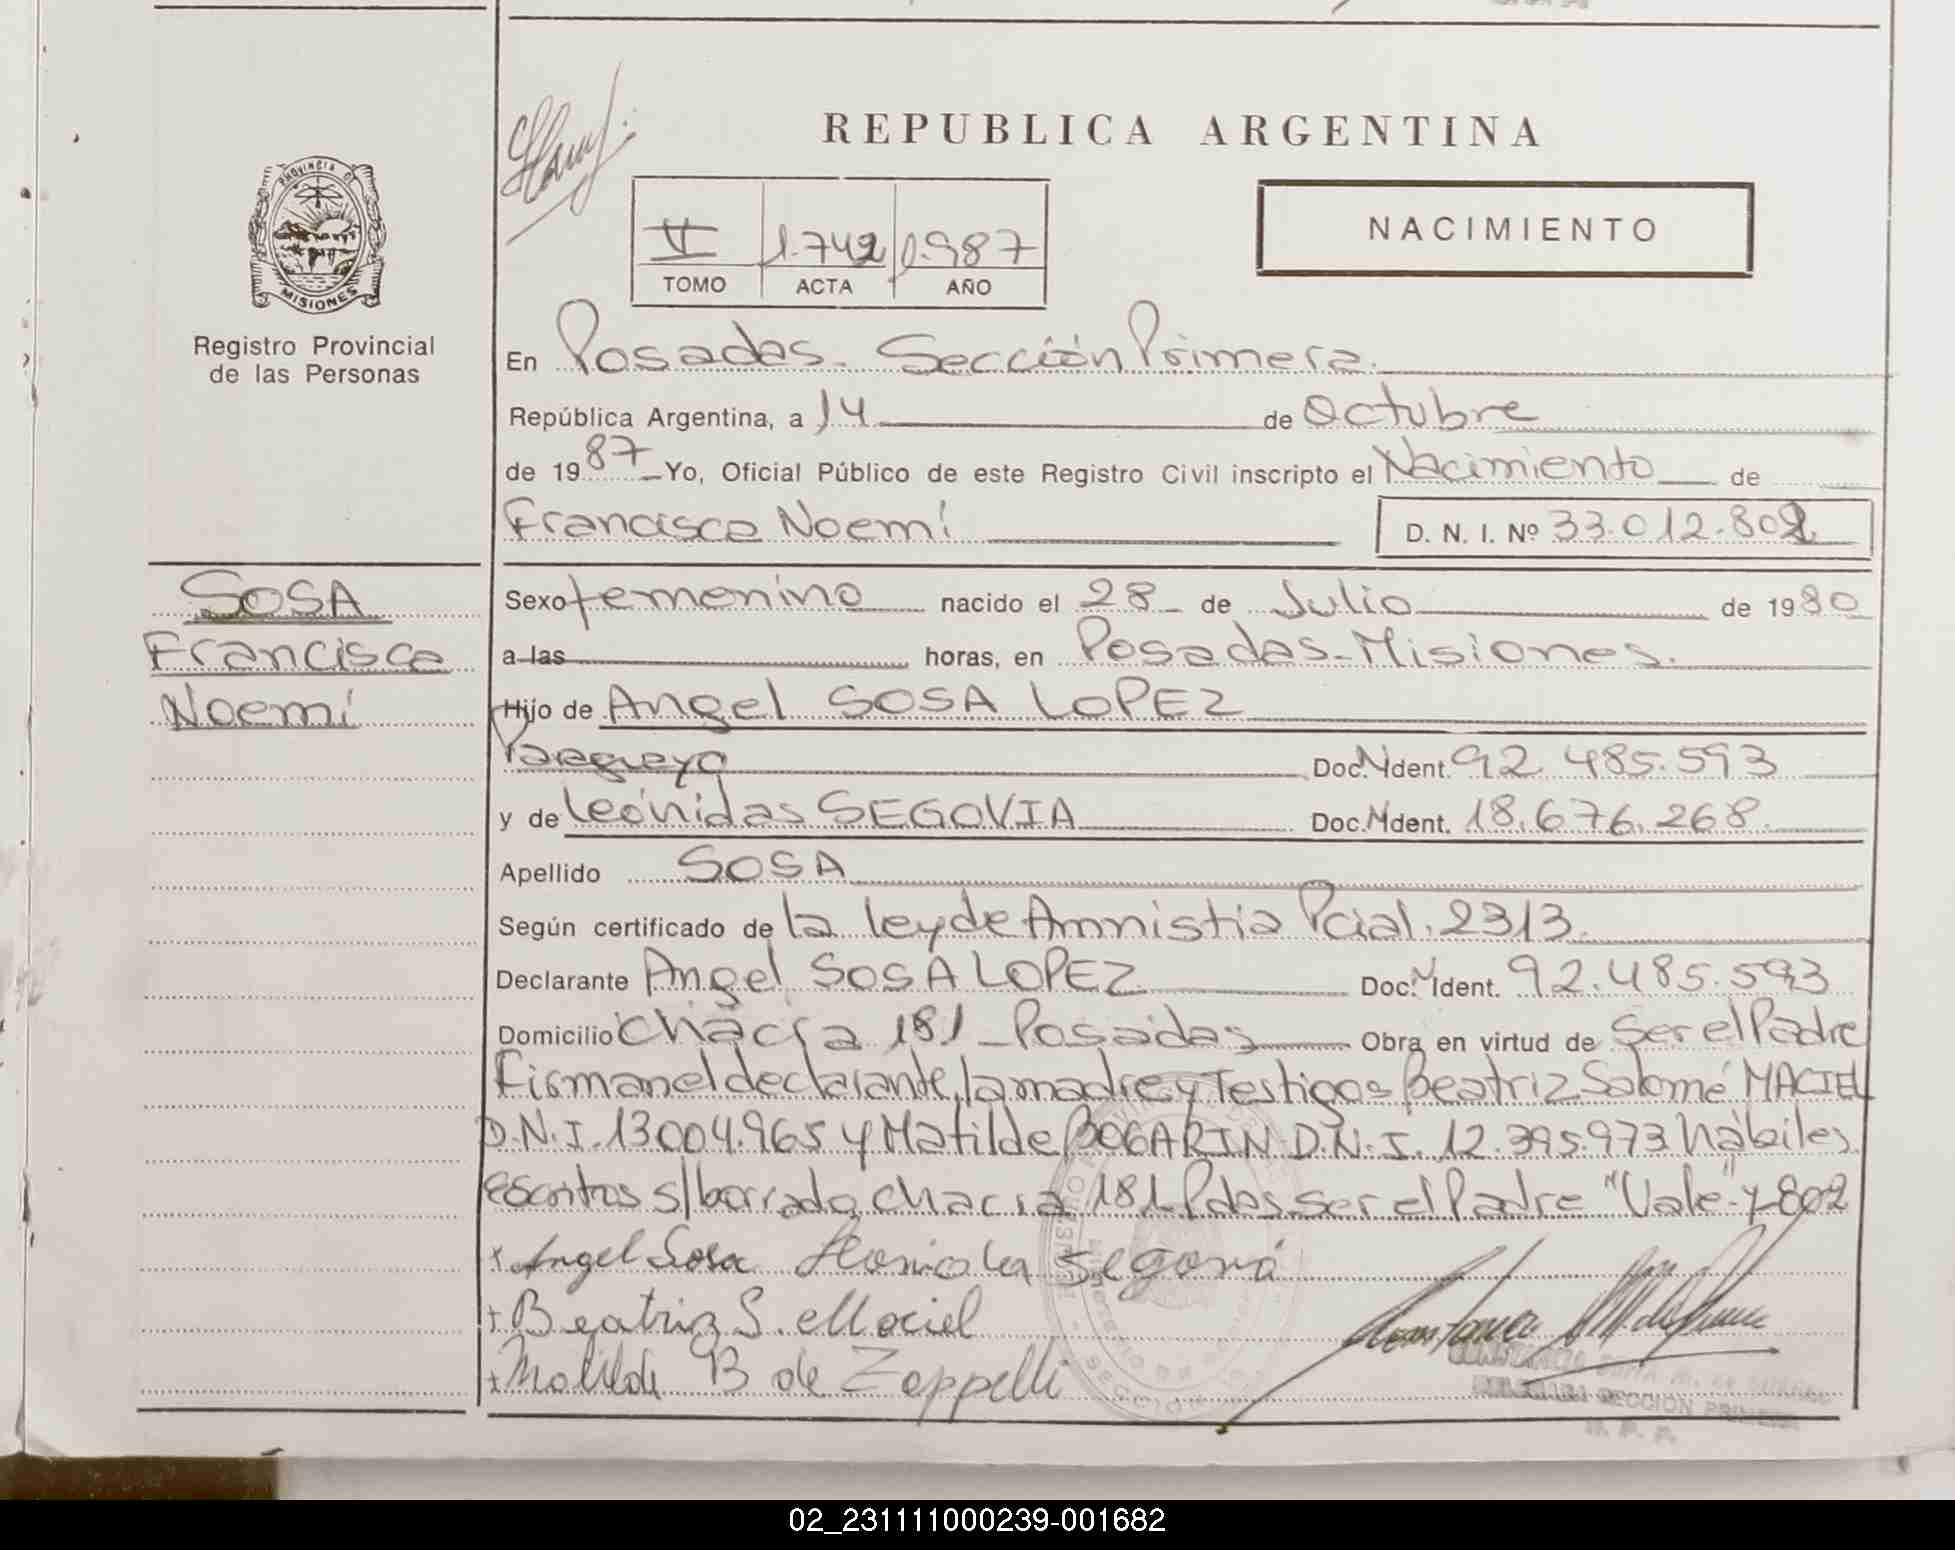 REPUBLICA ARGENTINA
NACIMIENTO
V 1.742 1.987
TOMO ACTA AÑO
PROVINCIA DE
MISIONES
Registro Provincial
de las Personas
SOSA
Francisca
Noemí
En Posadas. Sección Primera.
República Argentina, a 14 de Octubre
de 1987 Yo, Oficial Público de este Registro Civil inscripto el Nacimiento de
Francisca Noemí D. N. I. Nº 33.012.802
Sexo femenino nacido el 28 de Julio de 1980
a las horas, en Posadas-Misiones.
Hijo de Angel SOSA LOPEZ
Paraguayo Doc. Ident. 92.485.593
y de Leónidas SEGOVIA Doc. Ident. 18.676.268
Apellido SOSA
Según certificado de la ley de Amnistia Pcial. 2313.
Declarante Angel SOSA LOPEZ Doc. Ident. 92.485.593
Domicilio Chacra 181 - Posadas Obra en virtud de Ser el Padre
Firman el declarante, la madre y Testigos Beatriz Salomé MACIEL
D.N.I. 13004.965 y Matilde BOGARIN D.N.I. 12.395.973 hábiles
escritos s/borrado, chacra 181 Pdas ser el Padre "Vale" y 802
x Angel Sosa Segovia
+ Beatriz S. Maciel
+ Matilde B de Zeppelli
SECCION PRIMERA
02_231111000239-001682